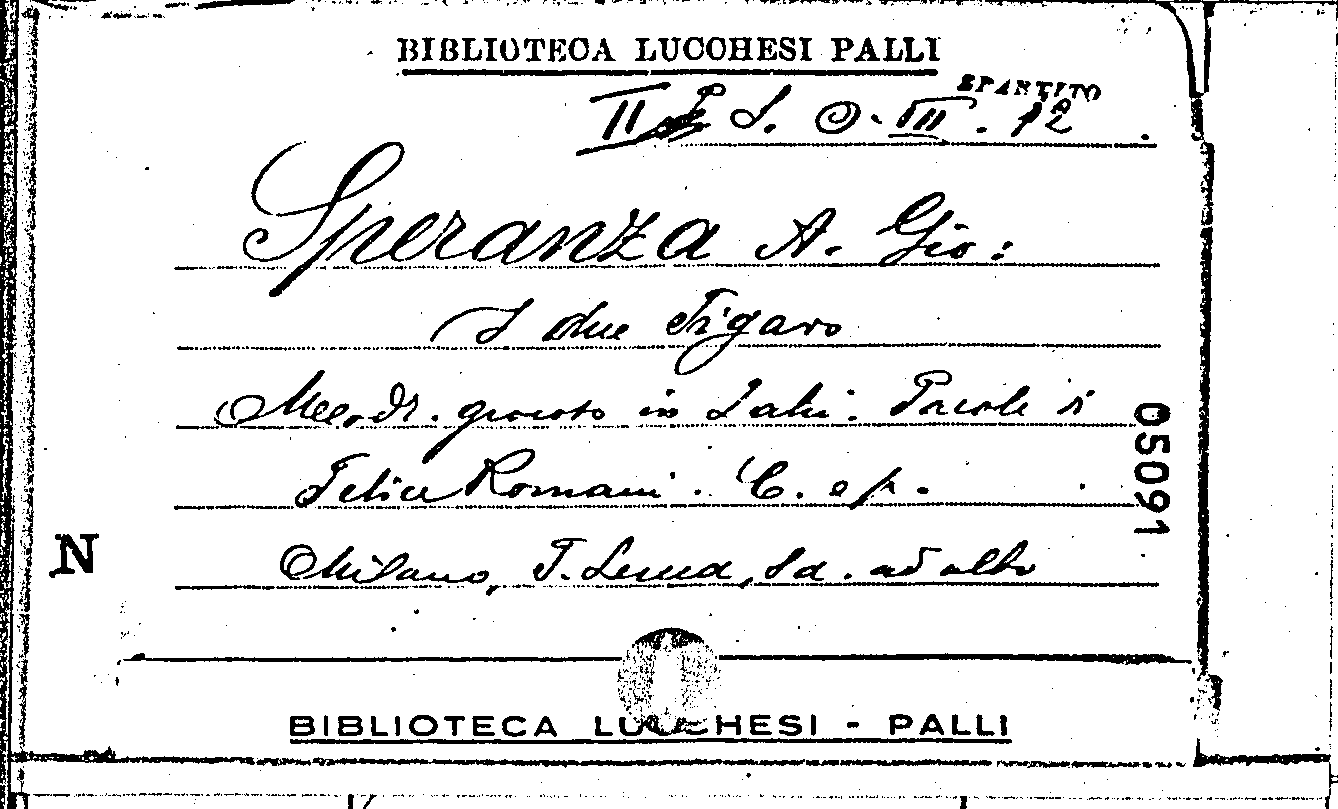 BIBLIOTECA LUCCHESI PALLI
SPARTITO
II S. O. III. 12.
Speranza A. Gio:
I due Figaro
Melodr. giocoso in 2 atti. Parole di
Felice Romani. C. e p.
Milano, F. Lucca, s. d. ad albo
05091
N
BIBLIOTECA LUCCHESI - PALLI